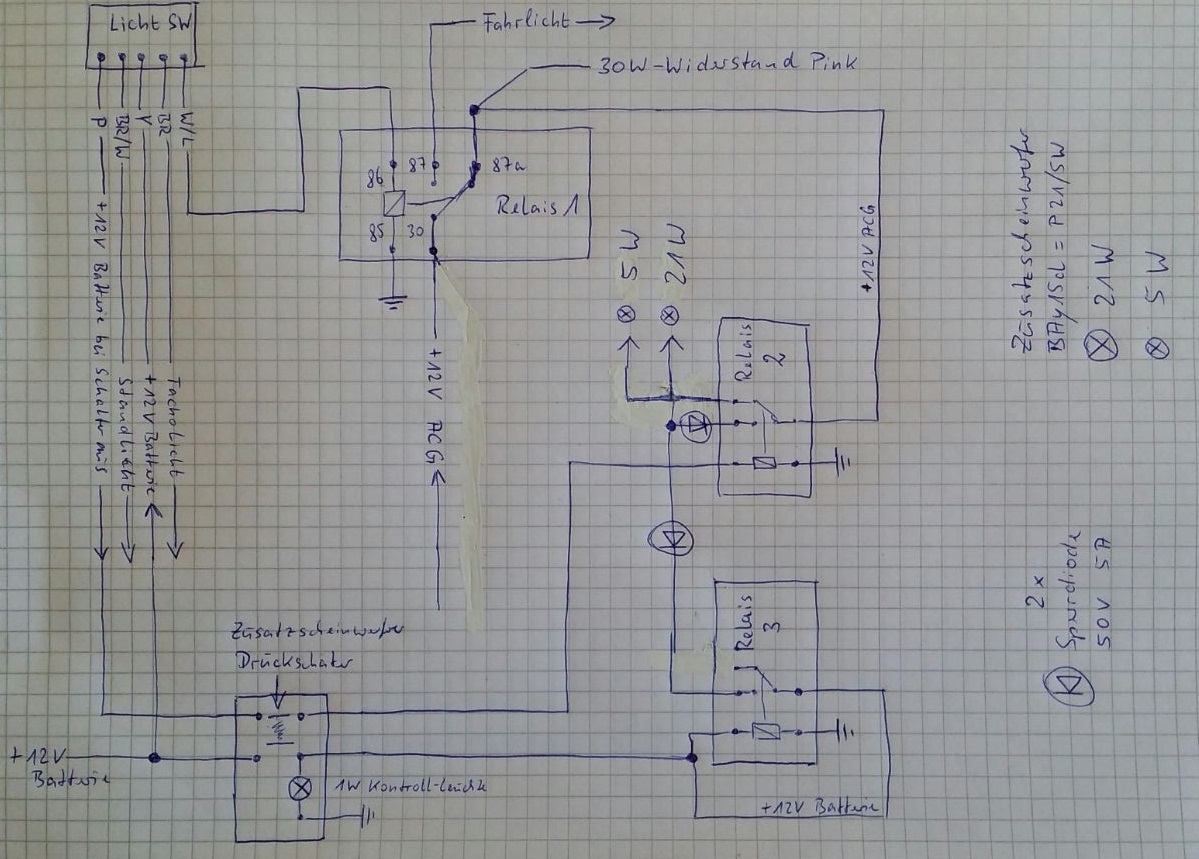 Licht SW
P
BR/W
Y
BR
W/L
+12V Batterie bei Schalt aus
Standlicht
+12V Batterie
Tacholicht
Fahrlicht
30W-Widerstand Pink
86
87
87a
85
30
Relais 1
+12V ACG
+12V ACG
5W
21W
Relais
2
Zusatzscheinwerfer
BAy15d = P21/5W
21W
5W
Relais
3
2x
Sperrdiode
50V 5A
Zusatzscheinwerfer
Druckschalter
+12V
Batterie
1W Kontroll-leuchte
+12V Batterie